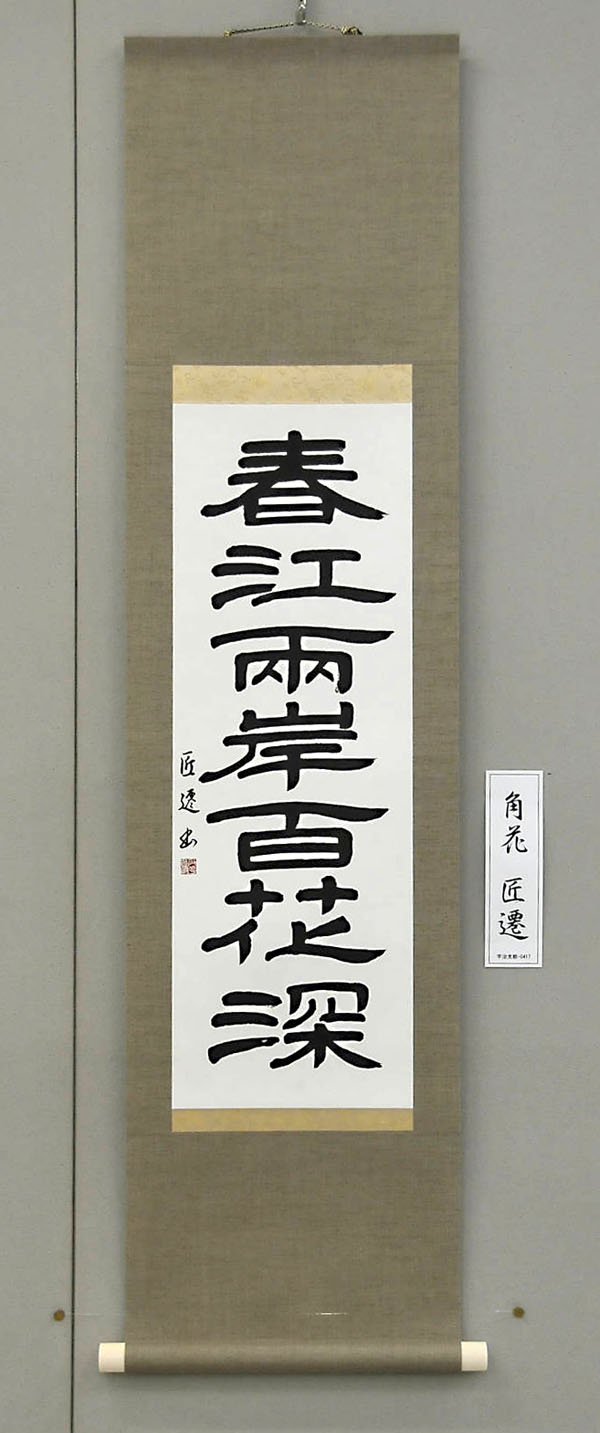 春江兩岸百花深
匠遷書
角花 匠遷